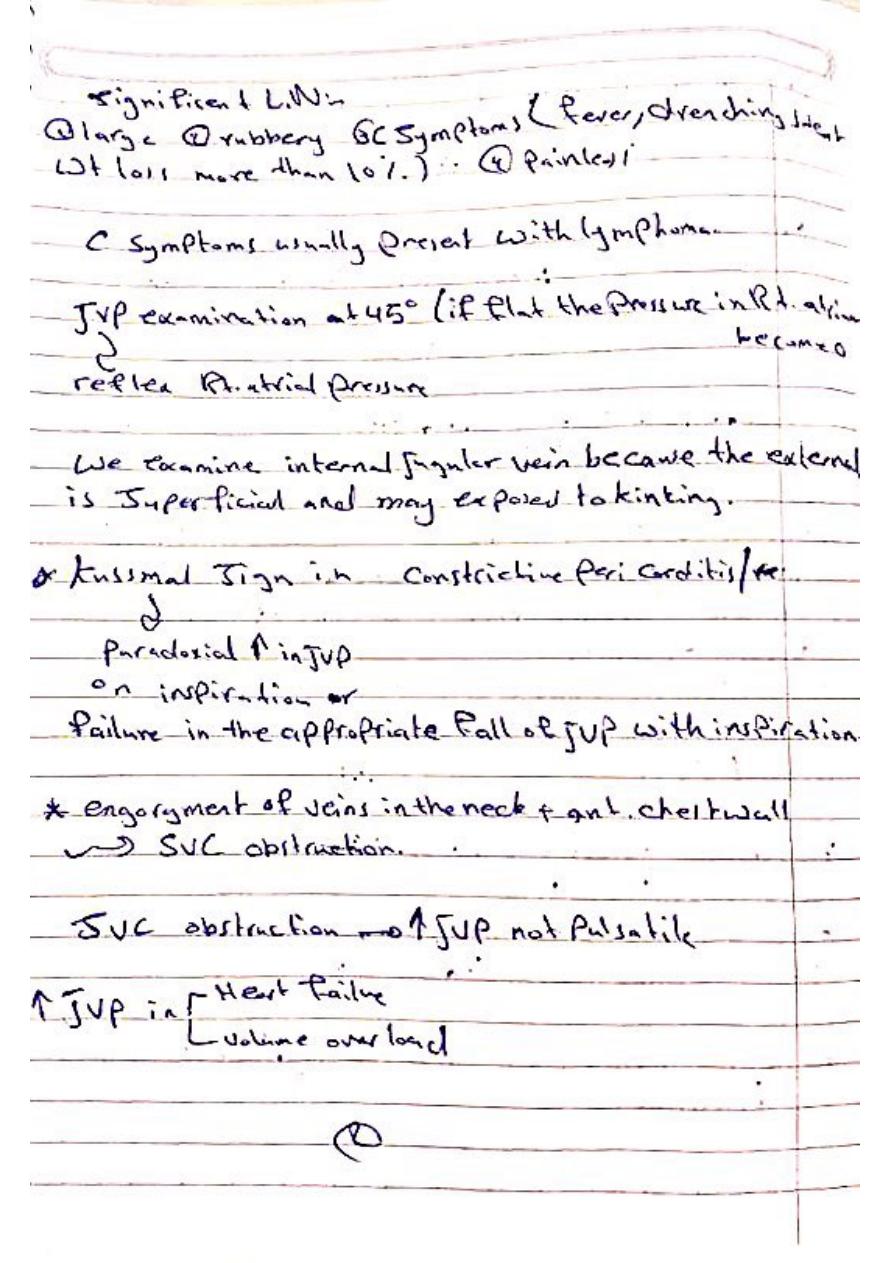 significent L.N:-
① large ② rubbery ③ C Symptoms (fever, drenching sweat
Wt loss more than 10%.) ④ Painless
C Symptoms usually present with lymphoma.
JVP examination at 45° (if flat the Pressure in Rt. atrium
become 0
reflea Rt. atrial pressure
We examine internal jugular vein because the external
is Superficial and may exposed to kinking.
* Kussmal Sign in Constrictive Pericarditis/
paradoxial ↑ in JVP
on inspiration or
failure in the appropriate fall of JVP with inspiration
* engorgment of veins in the neck + ant. chest wall
→ SVC obstruction.
SVC obstruction → ↑ JVP not Pulsatile
↑ JVP in Heart failue
volume over load